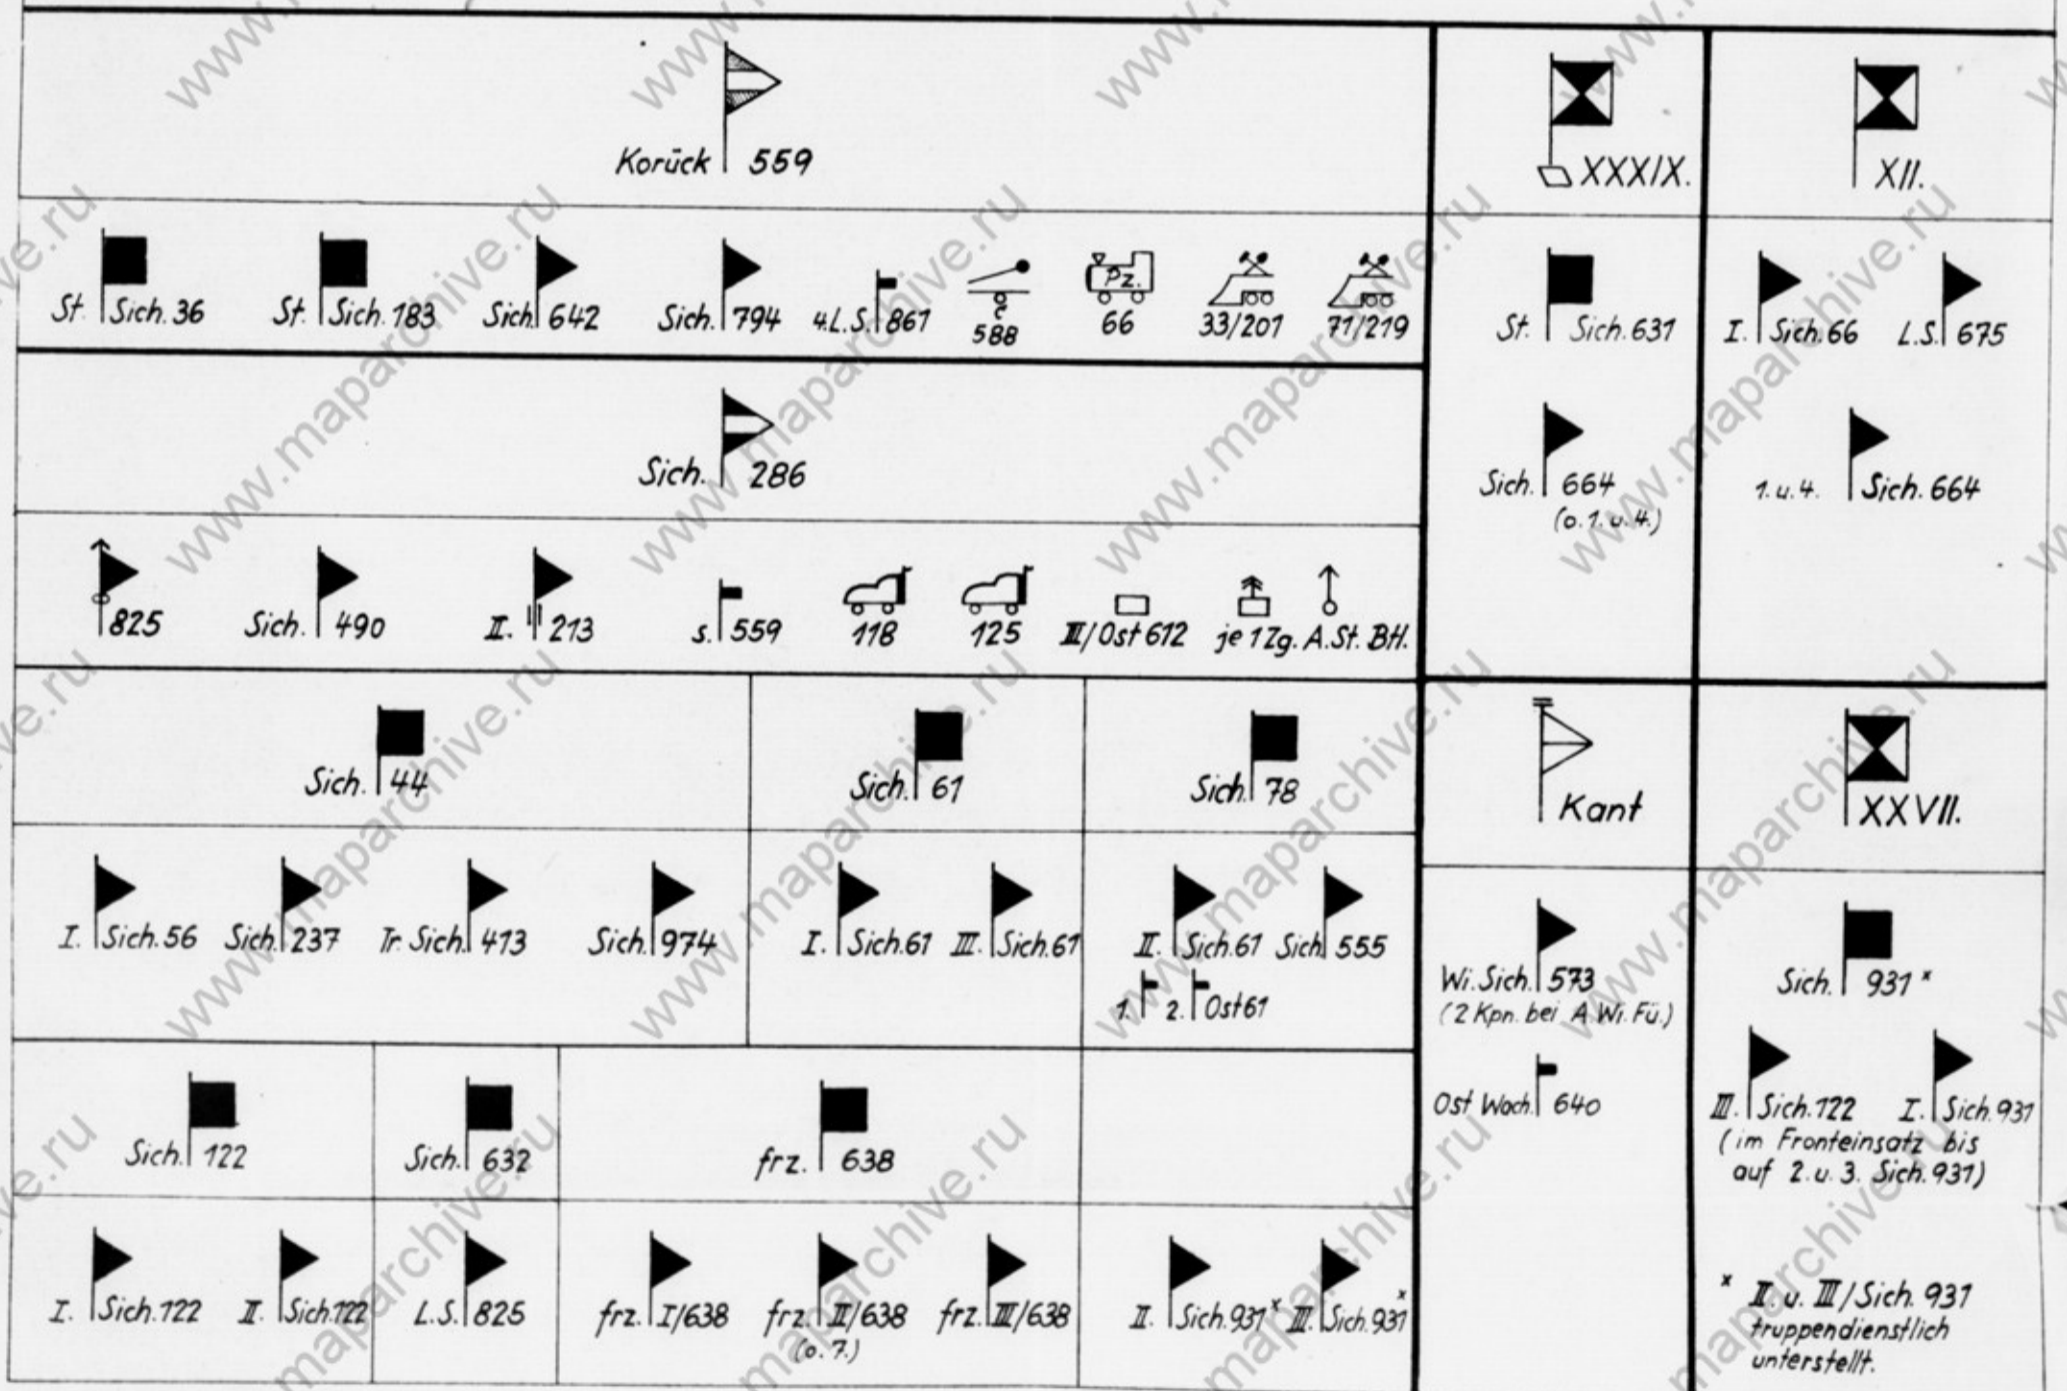 Korück 559
St. Sich. 36
St. Sich. 183
Sich. 642
Sich. 794
4.L.S. 861
588
Pz.
66
33/201
71/219
Sich. 286
825
Sich. 490
II. 213
s. 559
118
125
III/Ost 612
je 1 Zg. A.St. Btl.
Sich. 44
Sich. 61
Sich. 78
I. Sich. 56
Sich. 237
Tr. Sich. 413
Sich. 974
I. Sich. 61
III. Sich. 61
II. Sich. 61
Sich. 555
1. 2. Ost 61
Sich. 122
Sich. 632
frz. 638
I. Sich. 122
II. Sich. 122
L.S. 825
frz. I/638
frz. II/638
(o. 7.)
frz. III/638
II. Sich. 931 x
III. Sich. 931 x
XXXIX.
St. Sich. 631
Sich. 664
(o. 1. u. 4.)
XII.
I. Sich. 66
L.S. 675
1. u. 4. Sich. 664
Kant
Wi. Sich. 573
(2 Kpn. bei A.Wi.Fü.)
Ost Wach. 640
XXVII.
Sich. 931 x
III. Sich. 122
I. Sich. 931
(im Fronteinsatz bis
auf 2. u. 3. Sich. 931)
x II. u. III/Sich. 931
truppendienstlich
unterstellt.
www.maparchive.ru